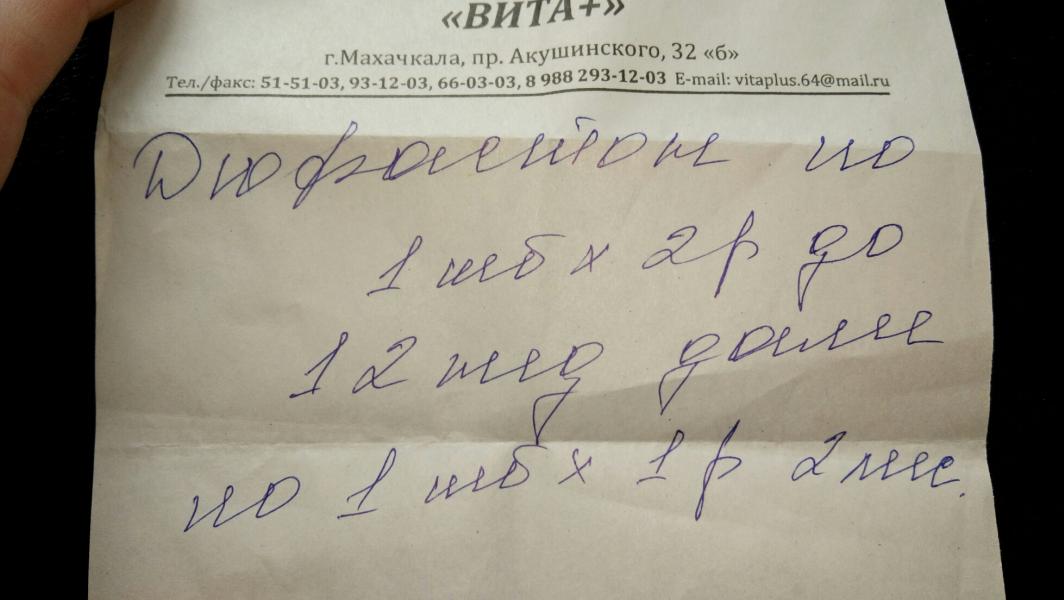 «ВИТА+»
г.Махачкала, пр. Акушинского, 32 «б»
Тел./факс: 51-51-03, 93-12-03, 66-03-03, 8 988 293-12-03 E-mail: vitaplus.64@mail.ru
Дюфастон по
1 таб х 2 р до
12 нед далее
по 1 таб х 1 р 2 мес.